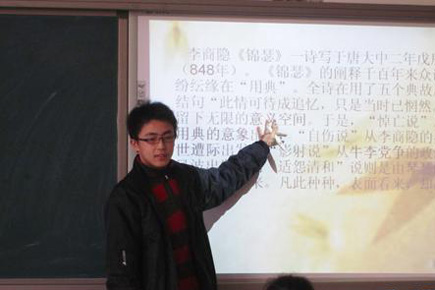 李商隐《锦瑟》一诗写于唐大中二年戊
（848年）。《锦瑟》的阐释千百年来众
纷纭缘在“用典”。全诗在用了五个典故
结句“此情可待成追忆，只是当时已惘然
留下无限的意义空间。于是，“悼亡说”
用典的意象 “自伤说”从李商隐的
世遭际出 影射说”从牛李党争的政
“适怨清和”说则是由
来。凡此种种，表面看来，却